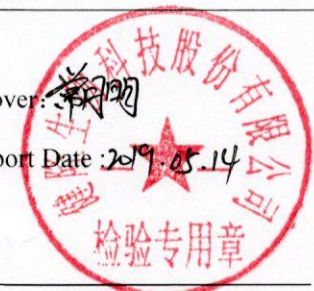 over:
port Date :2019.05.14
生
科技股份有限公司
检验专用章